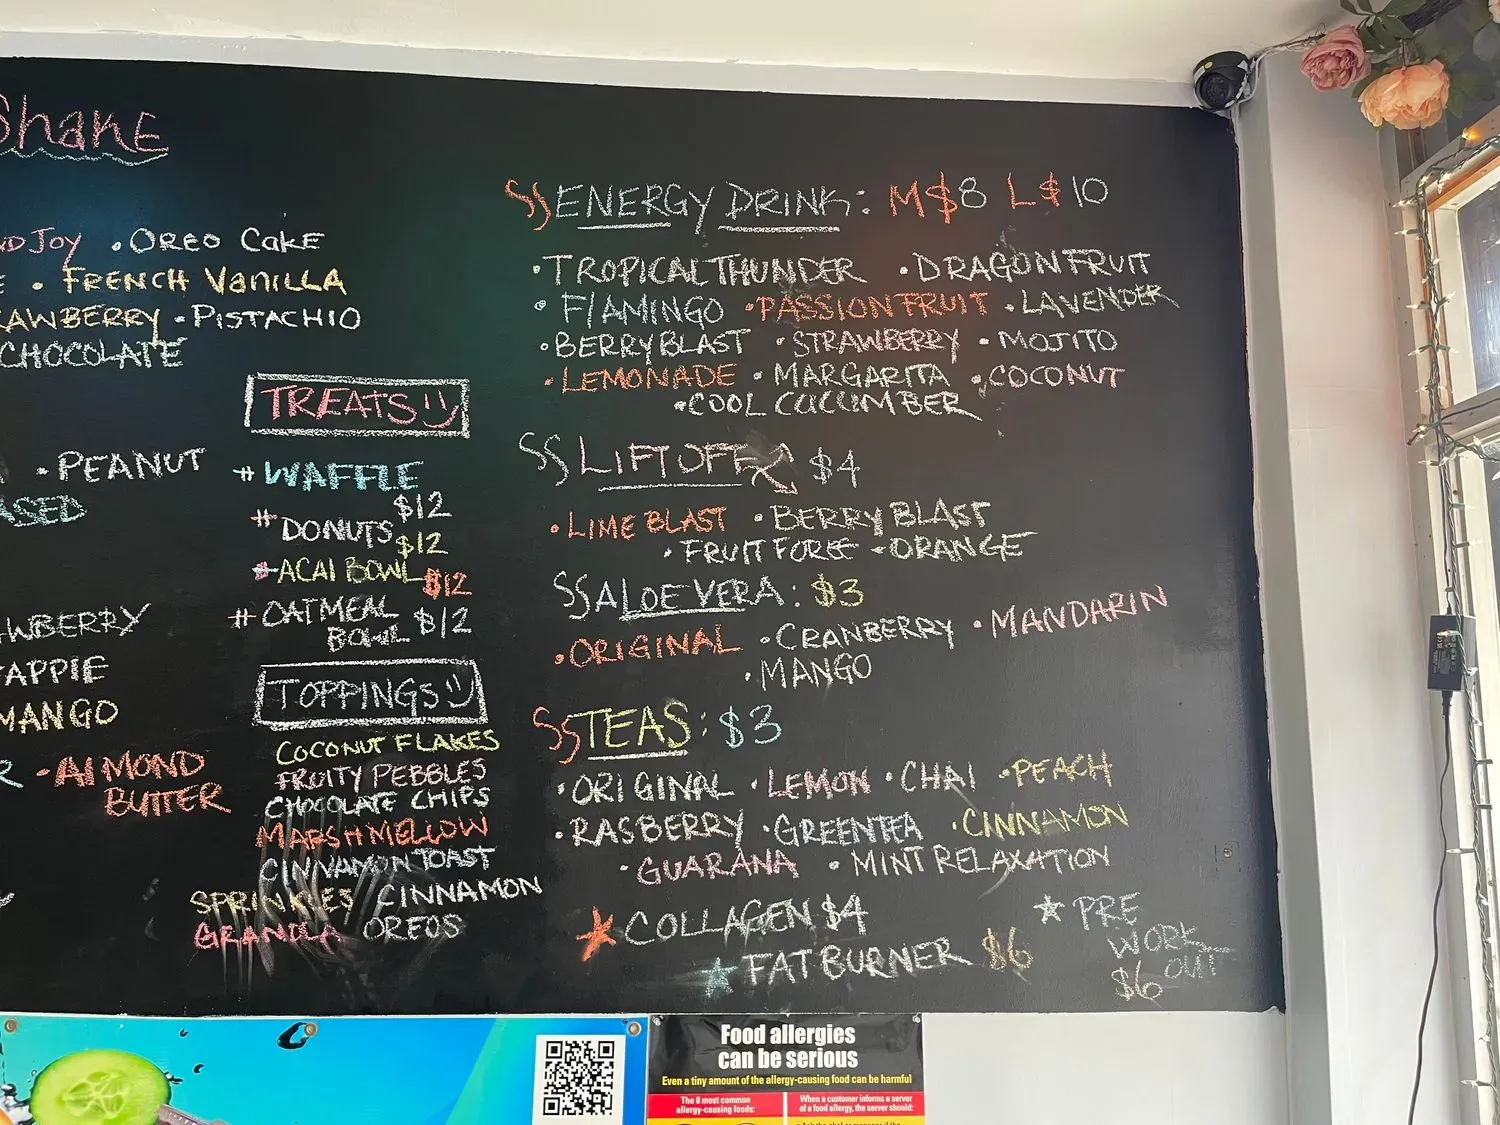 Shake
Joy • Oreo Cake
• French Vanilla
• Pistachio
Chocolate
TREATS
• PEANUT
# WAFFLE
$12
# DONUTS
$12
# ACAI BOWL $12
# OATMEAL
BOWL $12
TAPPIE
MANGO
• ALMOND
BUTTER
TOPPINGS
COCONUT FLAKES
FRUITY PEBBLES
CHOCOLATE CHIPS
MARSHMELLOW
CINNAMON TOAST
SPRINKLES CINNAMON
GRANOLA OREOS
ENERGY DRINK: M $8 L $10
• TROPICAL THUNDER • DRAGONFRUIT
• FLAMINGO • PASSIONFRUIT • LAVENDER
• BERRY BLAST • STRAWBERRY • MOJITO
• LEMONADE • MARGARITA • COCONUT
• COOL CUCUMBER
LIFTOFF $4
• LIME BLAST • BERRY BLAST
• FRUIT FORCE • ORANGE
ALOE VERA: $3
• ORIGINAL • CRANBERRY • MANDARIN
• MANGO
TEAS: $3
• ORIGINAL • LEMON • CHAI • PEACH
• RASBERRY • GREENTEA • CINNAMON
• GUARANA • MINT RELAXATION
COLLAGEN $4
FAT BURNER $6
PRE
WORK
OUT
$6
Food allergies
can be serious
Even a tiny amount of the allergy-causing food can be harmful
The 8 most common
allergy-causing foods:
When a customer informs a server
of a food allergy, the server should: